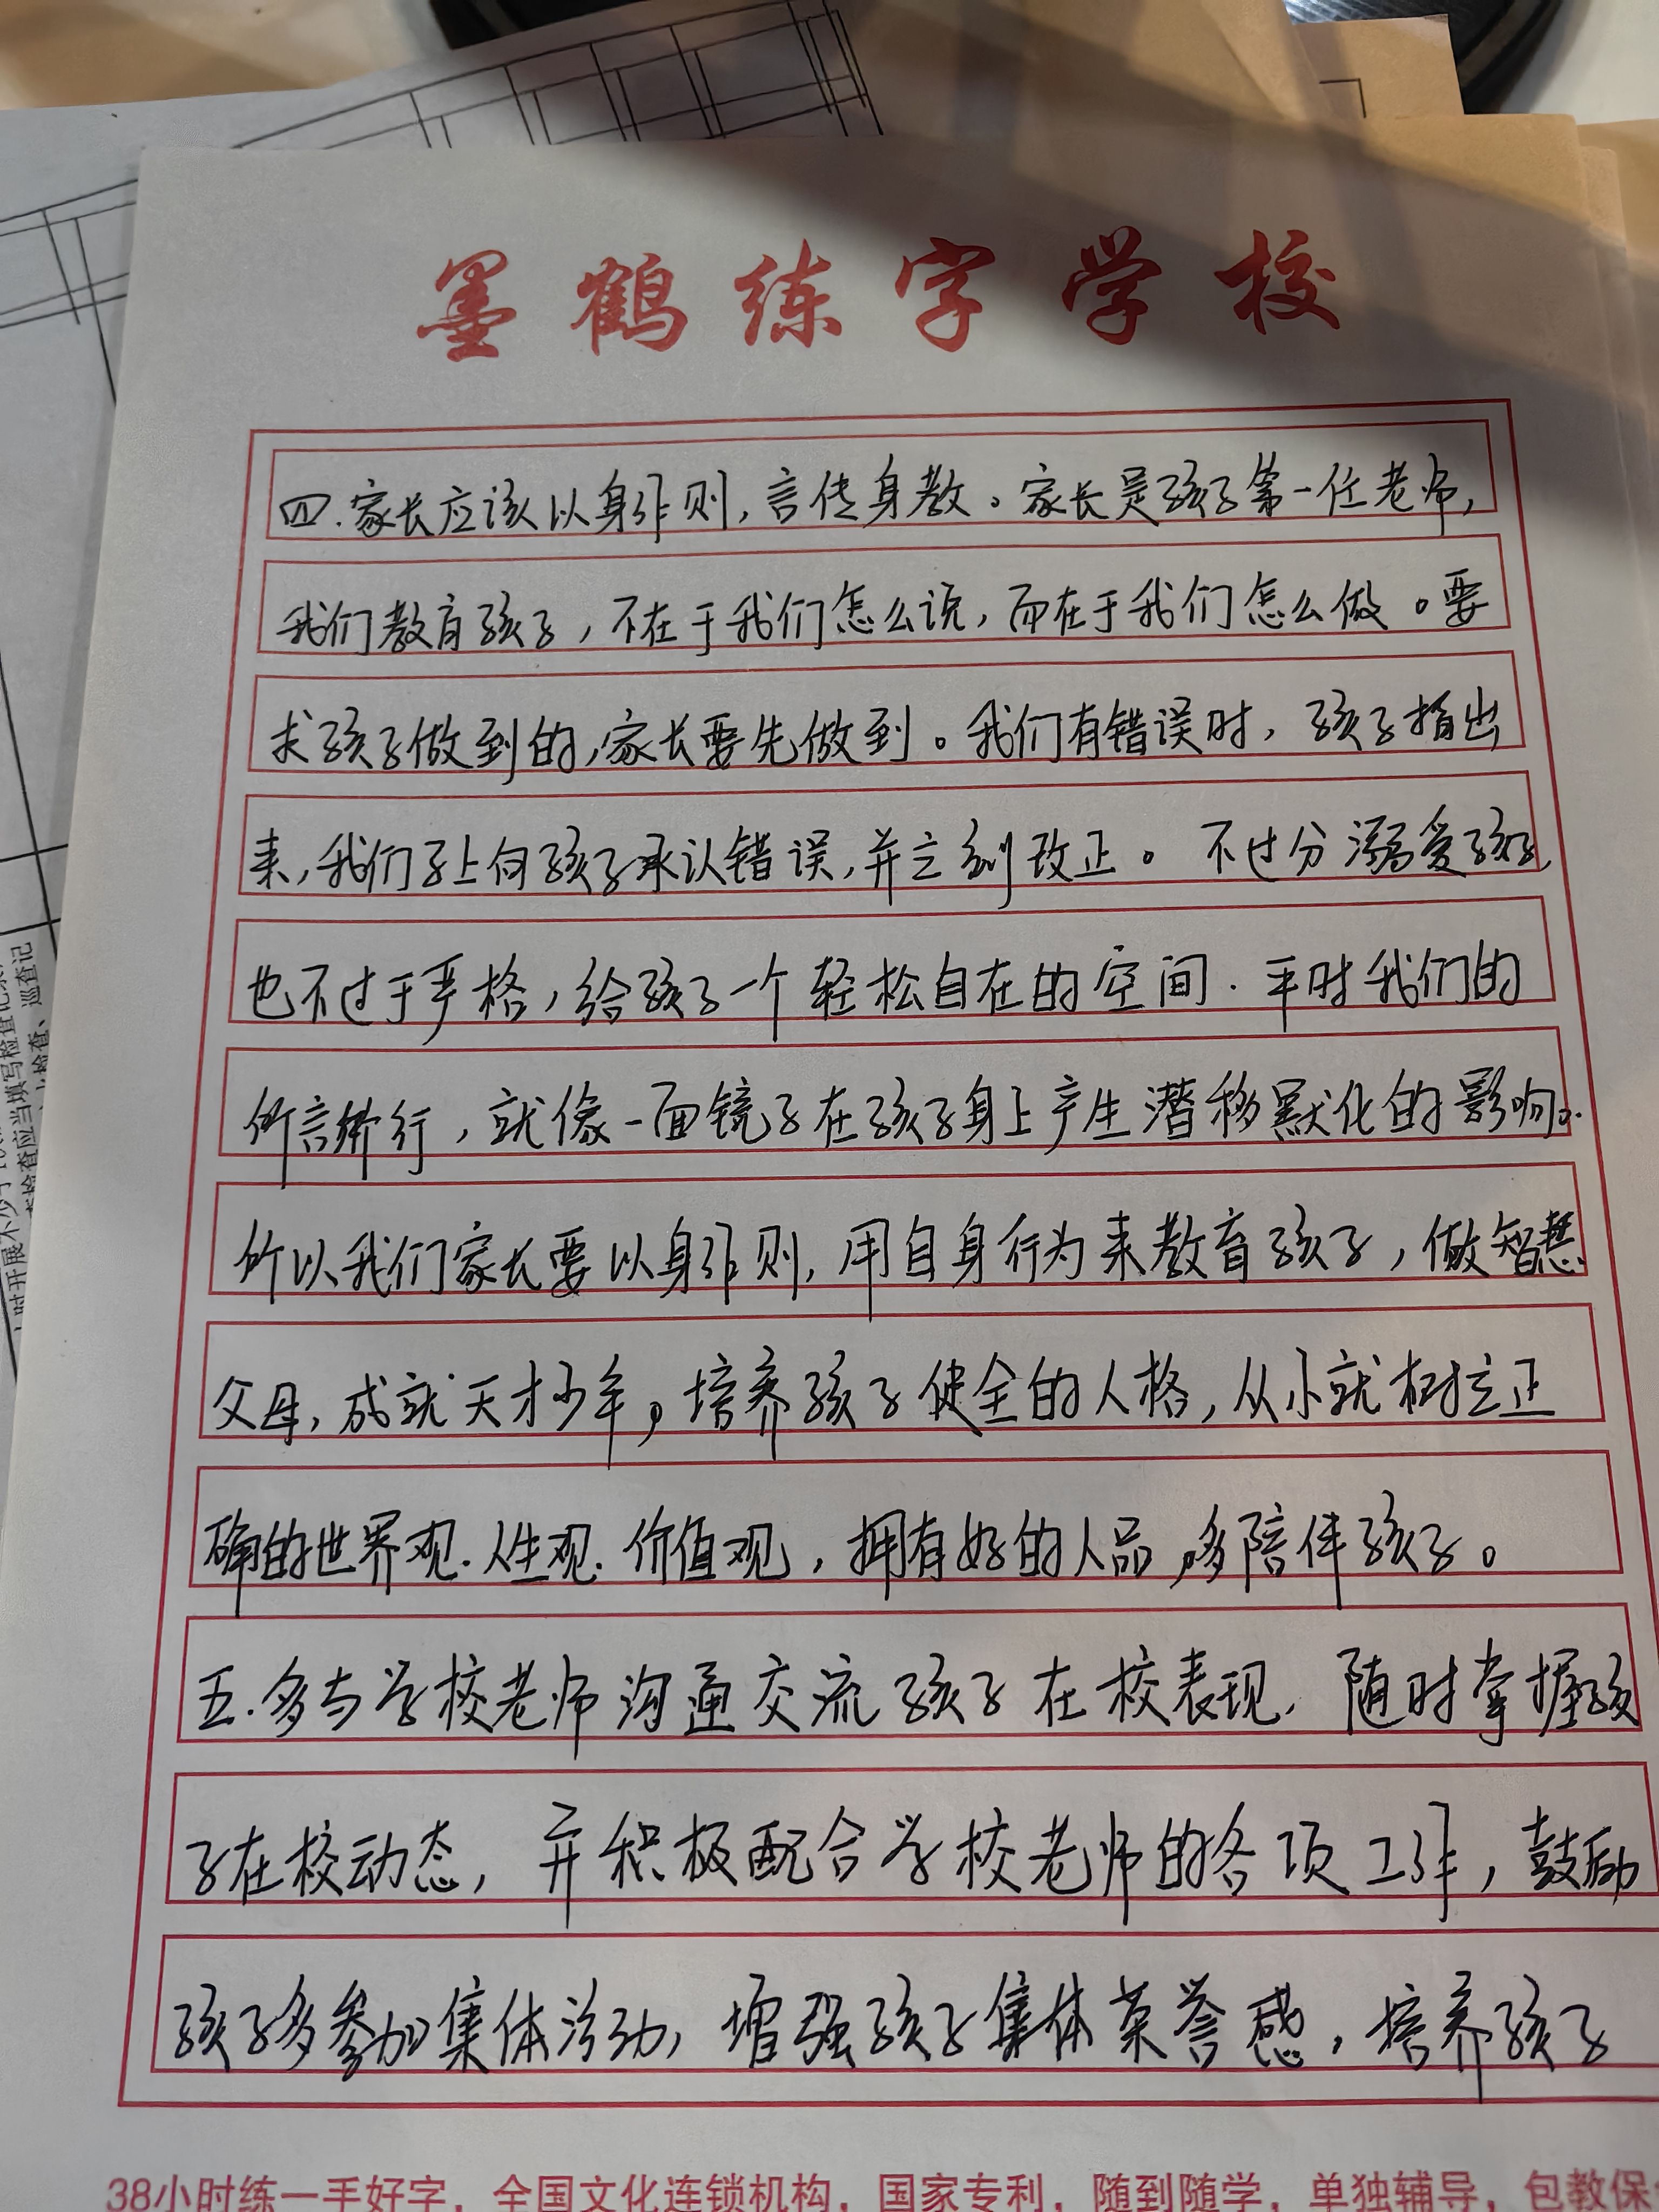 墨鹤练字学校
四.家长应该以身作则,言传身教。家长是孩子第一任老师,
我们教育孩子,不在于我们怎么说,而在于我们怎么做。要
求孩子做到的,家长要先做到。我们有错误时,孩子指出
来,我们马上向孩子承认错误,并立刻改正。不过分溺爱孩子,
也不过于严格,给孩子一个轻松自在的空间.平时我们的
所言所行,就像一面镜子在孩子身上产生潜移默化的影响。
所以我们家长要以身作则,用自身行为来教育孩子,做智慧
父母,成就天才少年,培养孩子健全的人格,从小就树立正
确的世界观.人生观.价值观,拥有好的人品,多陪伴孩子。
五.多与学校老师沟通交流孩子在校表现,随时掌握孩
子在校动态,并积极配合学校老师的各项工作,鼓励
孩子多参加集体活动,增强孩子集体荣誉感,培养孩子
38小时练一手好字,全国文化连锁机构,国家专利,随到随学,单独辅导,包教保
时开展不少于
检查应当填写检查记
检查、巡查记